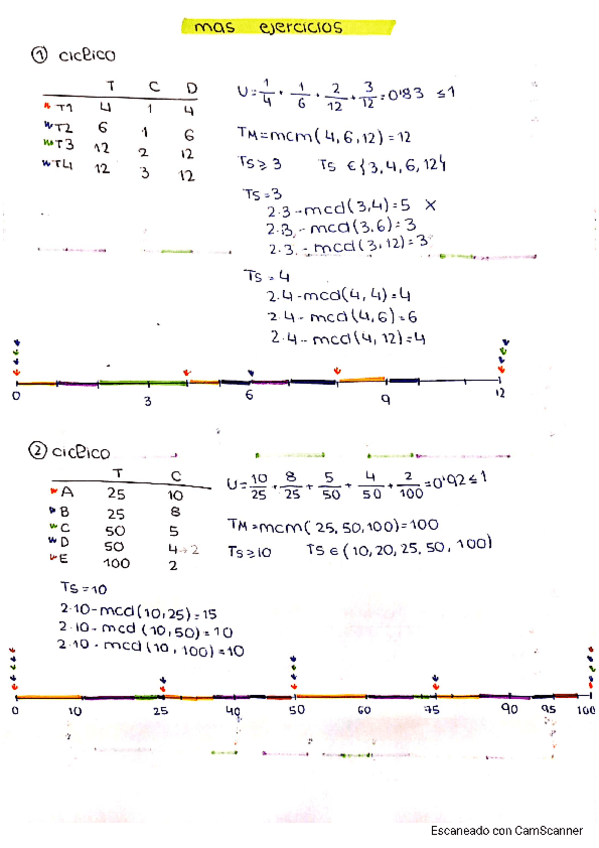 mas ejercicios
① ciclico
T C D
T1 4 1 4
T2 6 1 6
T3 12 2 12
T4 12 3 12
U = 1/4 + 1/6 + 2/12 + 3/12 = 0'83 ≤ 1
TM = mcm(4, 6, 12) = 12
TS ≥ 3 TS ∈ {3, 4, 6, 12}
TS = 3
2·3 - mcd(3,4) = 5 X
2·3 - mcd(3.6) = 3
2·3 - mcd(3,12) = 3
TS = 4
2·4 - mcd(4, 4) = 4
2·4 - mcd(4, 6) = 6
2·4 - mcd(4, 12) = 4
0 3 6 9 12
② ciclico
T C
A 25 10
B 25 8
C 50 5
D 50 4→2
E 100 2
U = 10/25 + 8/25 + 5/50 + 4/50 + 2/100 = 0'92 ≤ 1
TM = mcm(25, 50, 100) = 100
TS ≥ 10 TS ∈ (10, 20, 25, 50, 100)
TS = 10
2·10 - mcd(10, 25) = 15
2·10 - mcd(10, 50) = 10
2·10 - mcd(10, 100) = 10
0 10 25 40 50 60 75 90 95 100
Escaneado con CamScanner